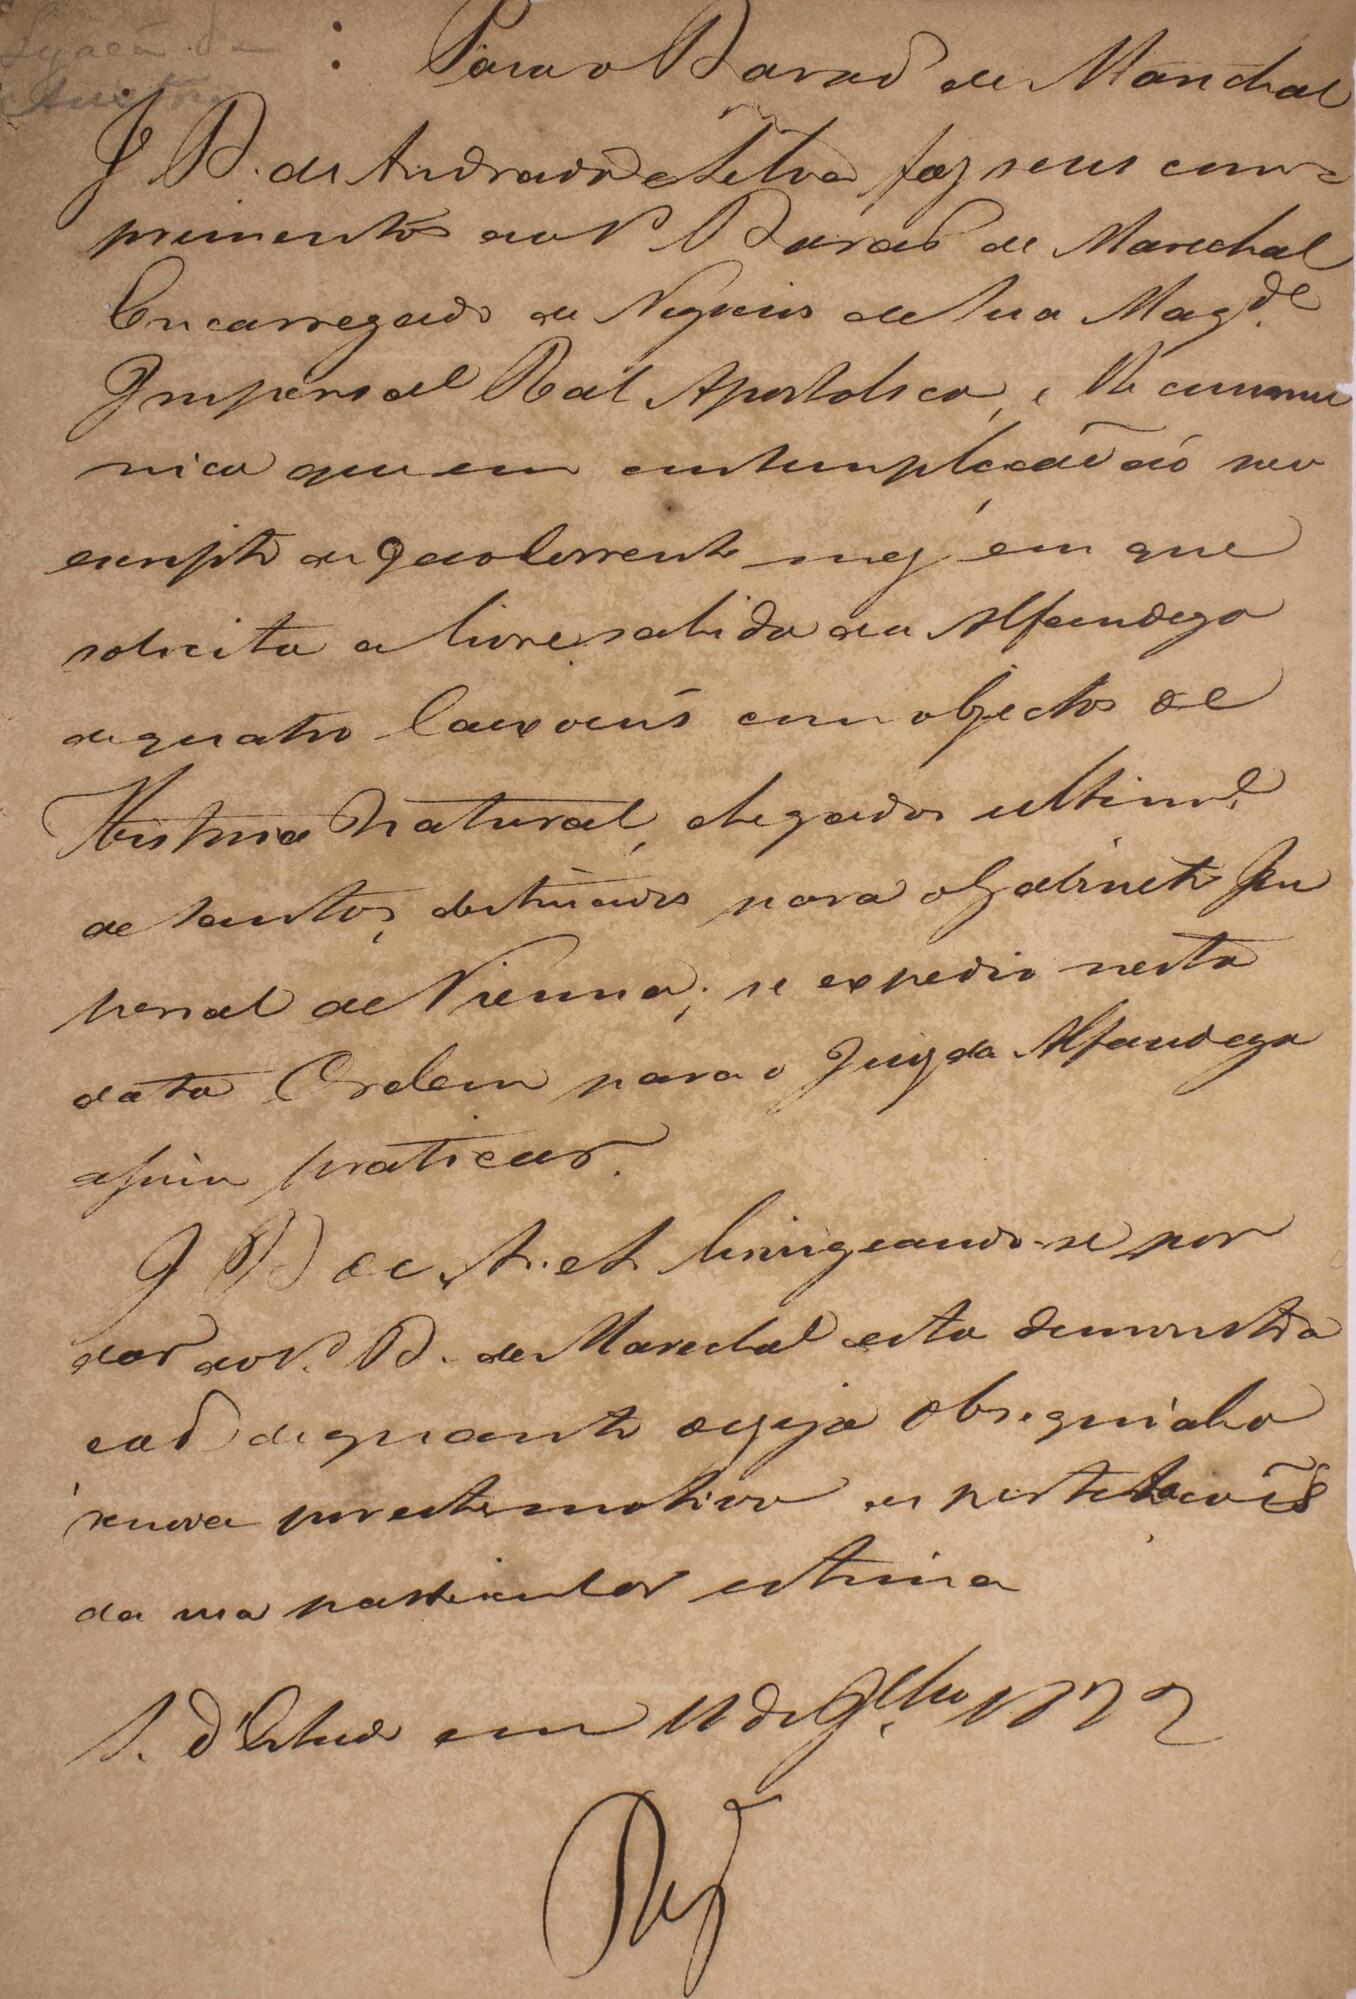 Legação da
Austria
Para o Barão de Marichal
J B. de Andrada e Silva faz seus com=
primentos ao Sr Barão de Mareschal
Encarregado de Negocios de Sua Magde.
Imperial Real Apostolica, e lhe commu
nica que em contemplação ao seu
escripto de 9 do Corrente mez em que
solicita a livre sahida da Alfandega
de quatro Caixoens com objectos de
Historia Natural, chegados ultime.
de Santos, destinados para o Gabinete Im
perial de Vienna; se expedio nesta
data Ordem para o Juiz da Alfandega
assim praticar.
J B de A. e S. lisongeando-se por
dar ao Sr. B. de Mareschal esta demonstra
ção de quanto deseja obsequialo
renova por este motivo as protestaçoẽs
da sua particular estima
S. d'Estado em 11 de Julho 1822